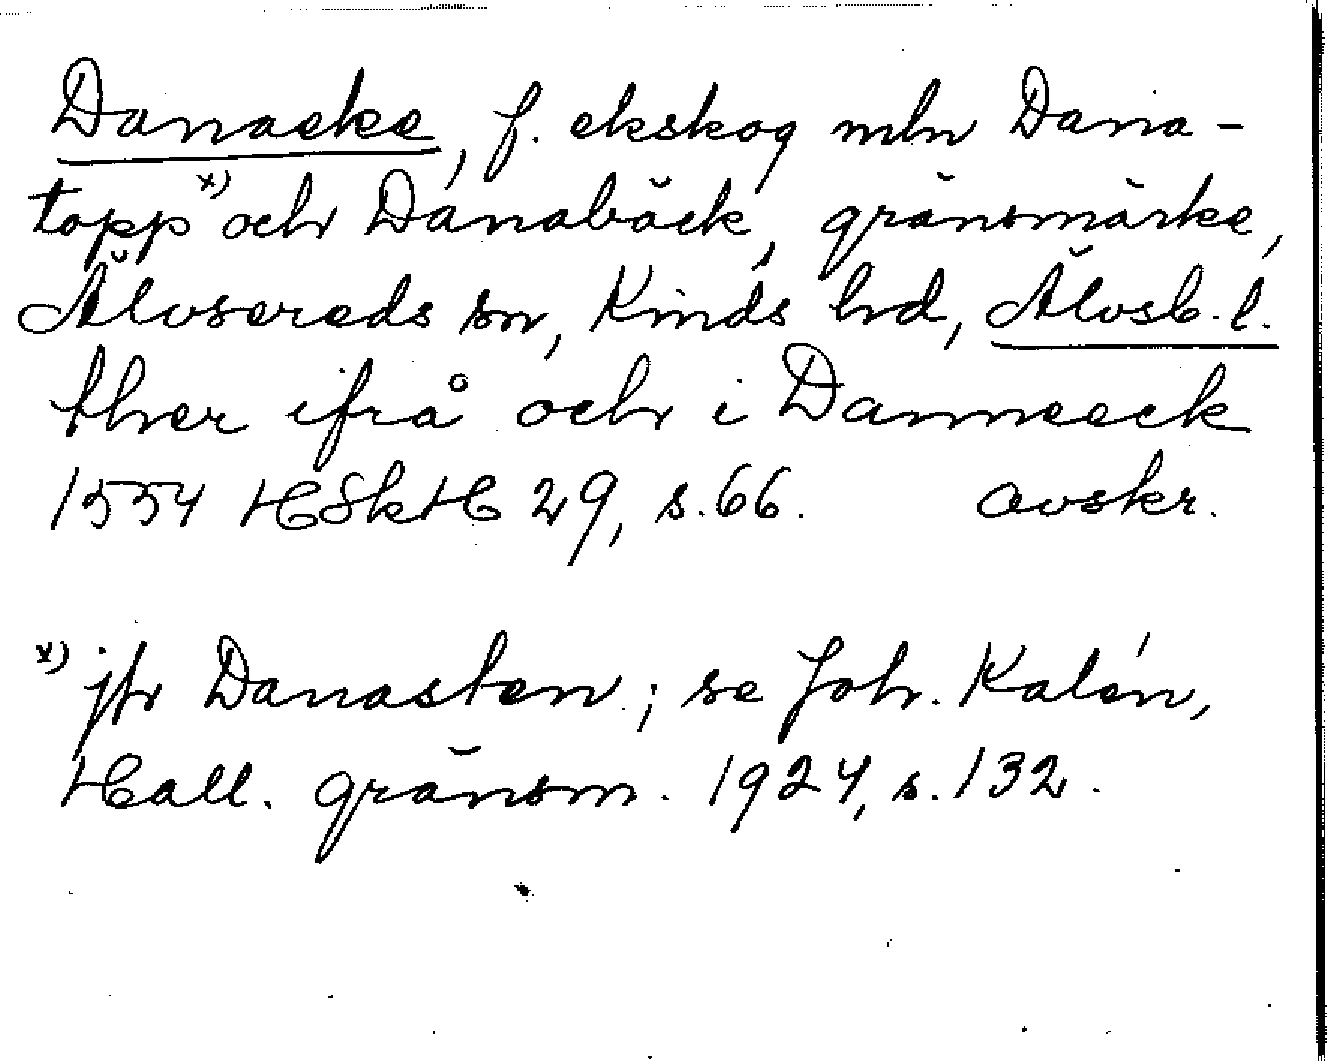 Danaeke, f. ekskog mln Dana-
topp x) och Danabäck, gränsmärke,
Älvsereds sn, Kinds hd, Älvsb. l.
ther ifrå och i Danneeck
1554 HSkH 29, s. 66. avskr.
x) jfr Danasten; se Joh. Kalén,
Hall. gränsm. 1924, s. 132.